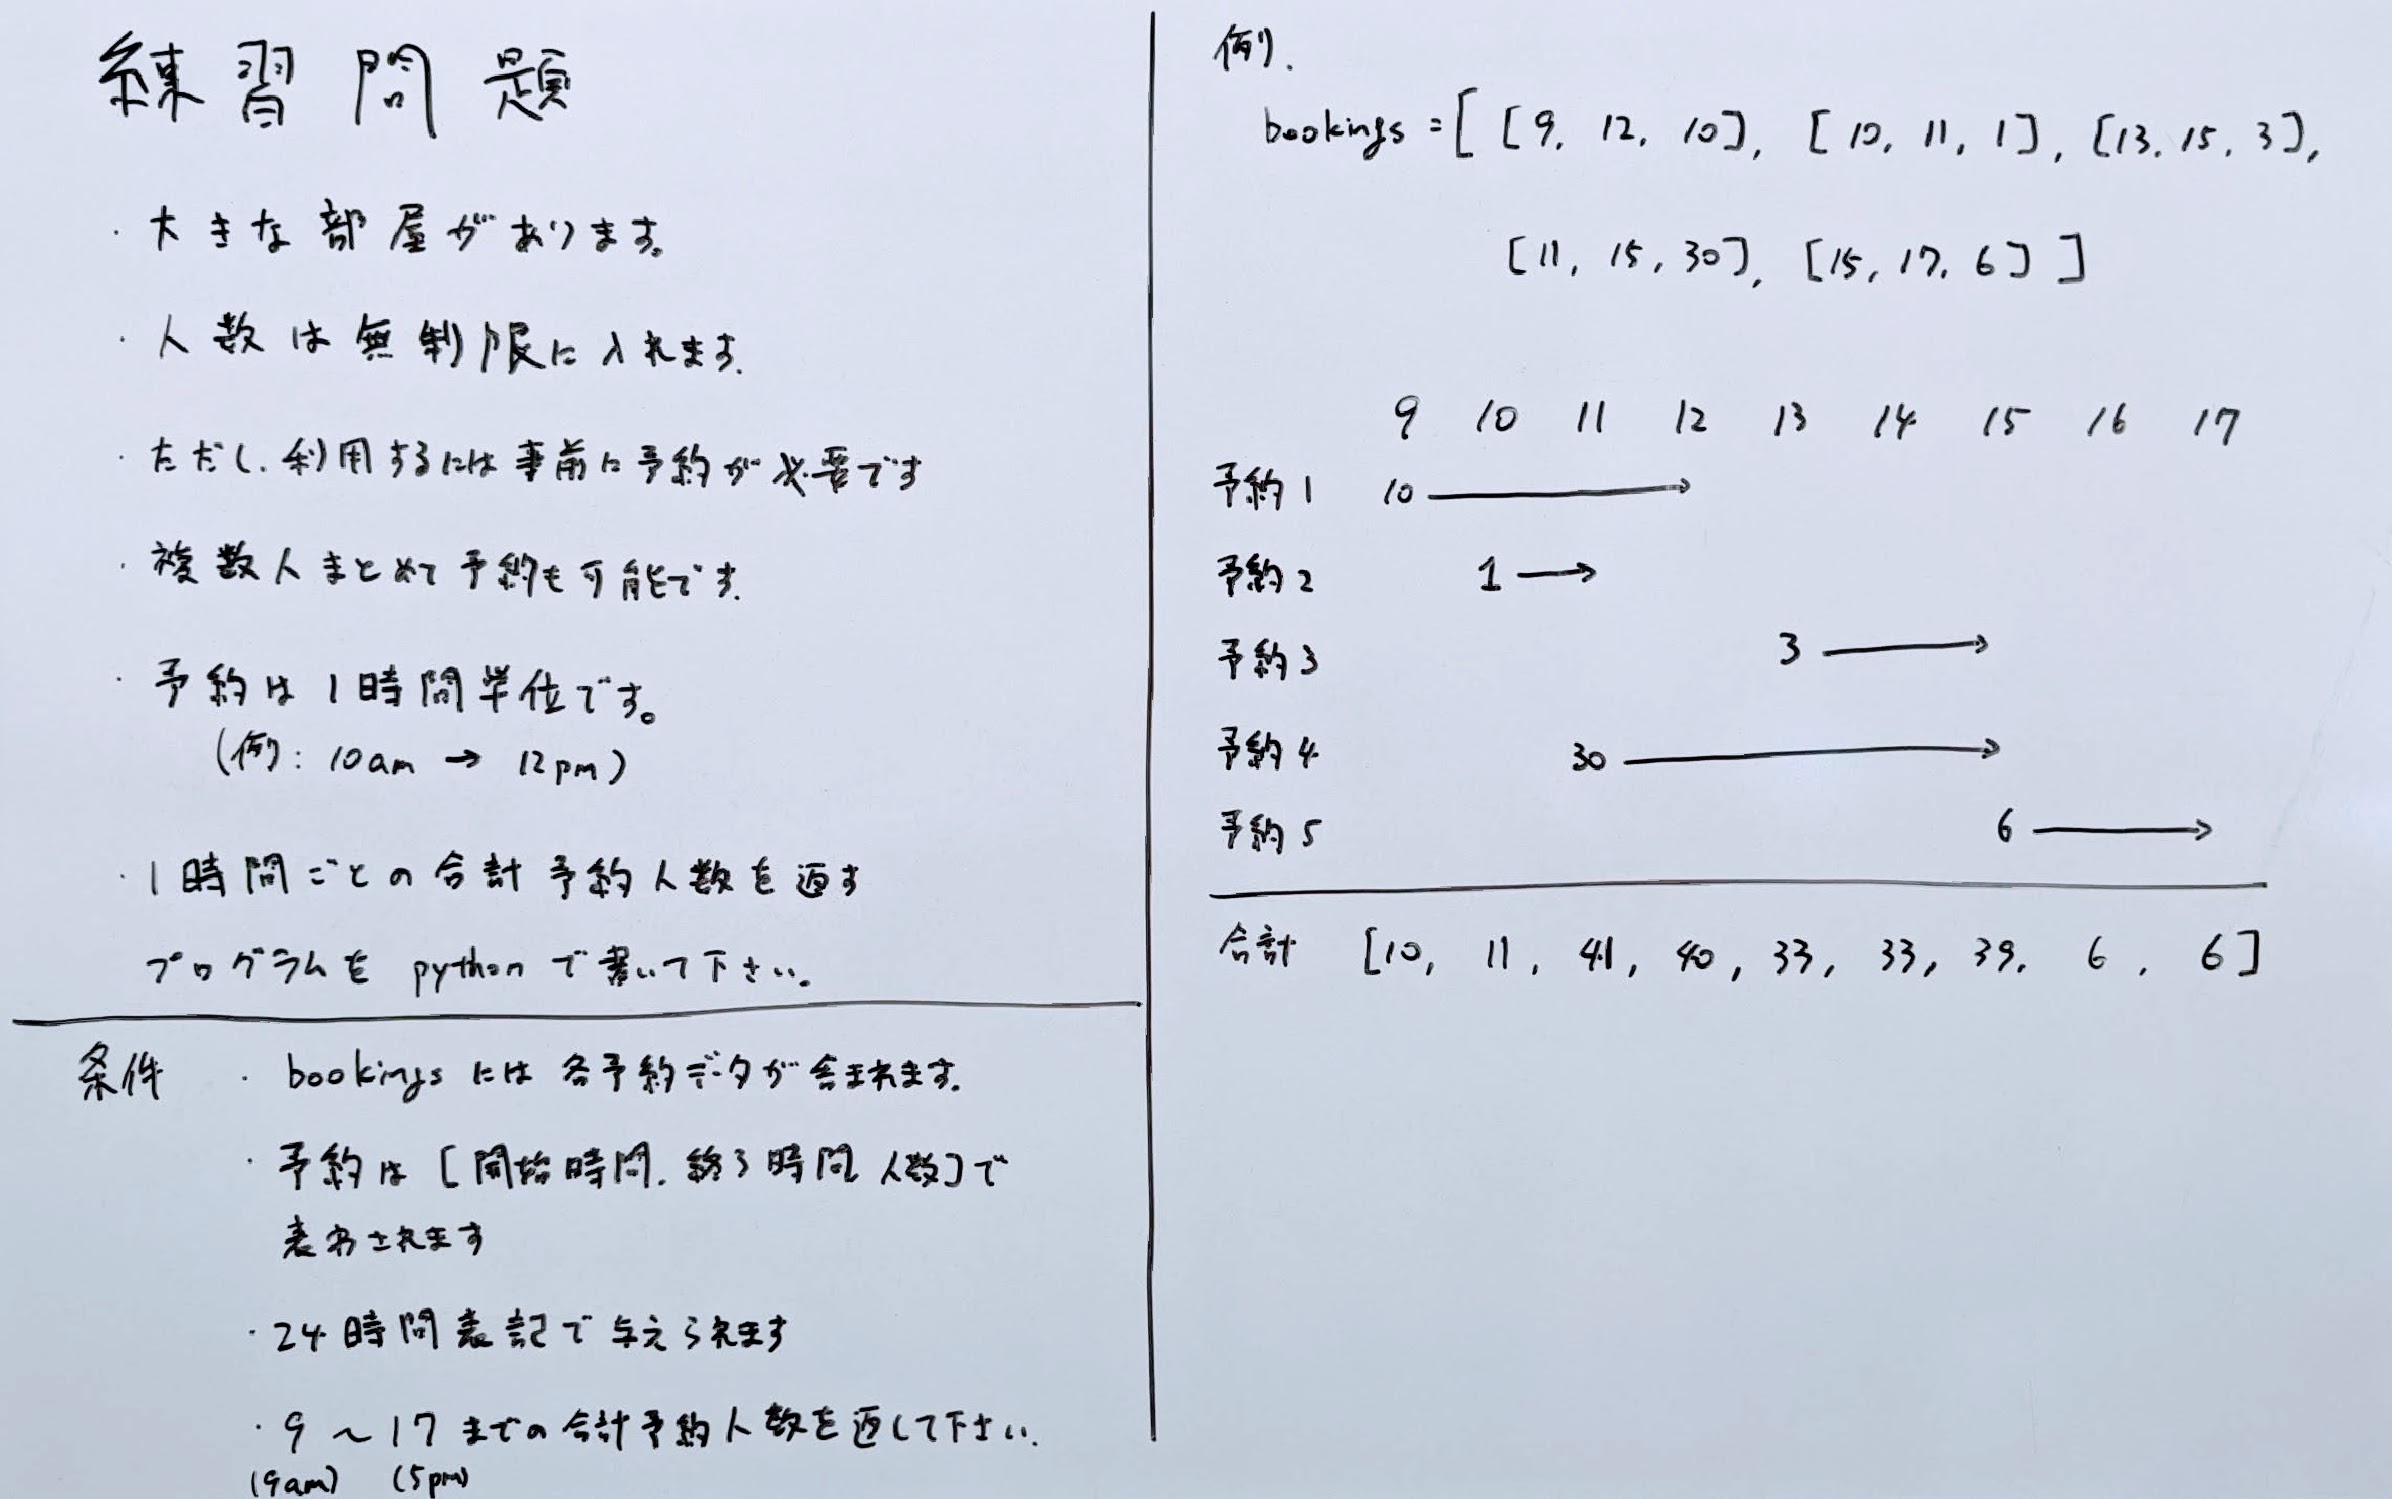 練習問題
・大きな部屋があります。
・人数は無制限に入れます.
・ただし、利用するには事前に予約が必要です
・複数人まとめて予約も可能です.
・予約は1時間単位です。
(例: 10am → 12pm)
・1時間ごとの合計予約人数を返す
プログラムを pythonで書いて下さい。
条件 ・bookingsには各予約データが含まれます.
・予約は [開始時間. 終了時間 人数]で
表わされます
・24時間表記で与えられます
・9 ～ 17 までの合計予約人数を返して下さい.
(9am) (5pm)
例.
bookings = [ [9, 12, 10], [10, 11, 1], [13, 15, 3],
[11, 15, 30], [15, 17, 6] ]
9 10 11 12 13 14 15 16 17
予約1 10 →
予約2 1 →
予約3 3 →
予約4 30 →
予約5 6 →
合計 [10, 11, 41, 40, 33, 33, 39, 6, 6]